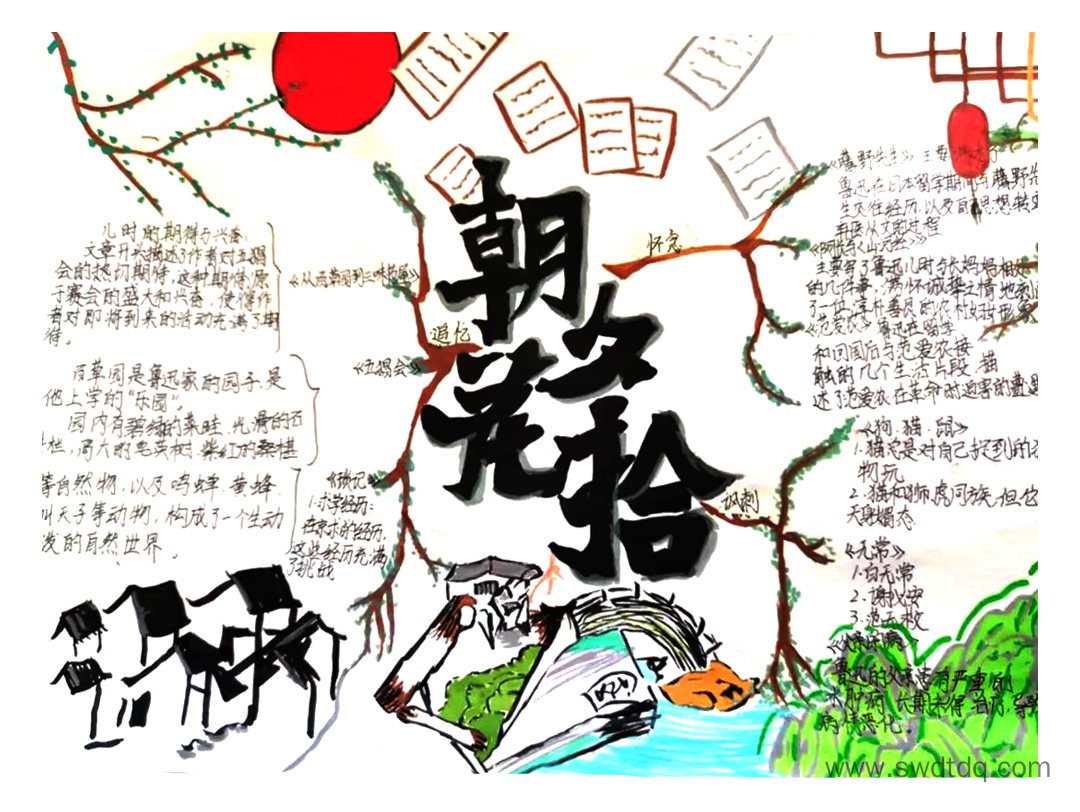 朝
夕
花
拾
儿时的期待与兴奋:
文章开头描述了作者对五猖
会的热切期待,这种期待源
于赛会的盛大和兴奋,使得作
者对即将到来的活动充满了期
待。
百草园是鲁迅家的园子,是
他上学的“乐园”。
园内有碧绿的菜畦,光滑的石
井栏,高大的皂荚树,紫红的桑椹
等自然物,以及鸣蝉、黄蜂、
叫天子等动物,构成了一个生动
发的自然世界。
《从百草园到三味书屋》
追忆
《五猖会》
《琐记》
1.求学经历:
在家求学经历,
这些经历充满
了挑战
怀念
《藤野先生》主要
鲁迅在日本留学期间与藤野先
生交往经历,以及自思想转变
弃医从文的过程
《阿长与〈山海经〉》
主要写了鲁迅儿时与长妈妈相处
的几件事,
了一位淳朴善良的农村妇女形象
《范爱农》鲁迅在留学
和回国后与范爱农接
触的几个生活片段,描
述了范爱农在革命时迫害的遭遇
讽刺
《狗·猫·鼠》
1.猫总是对自己捉到的
物玩
2.猫和狮虎同族,但它
天身媚态
《无常》
1.白无常
2.谢必安
3.范无救
《父亲的病》
鲁迅的父亲患有严重的
水肿病,长期未得治疗,导致
病情恶化。
www.swdtdq.com